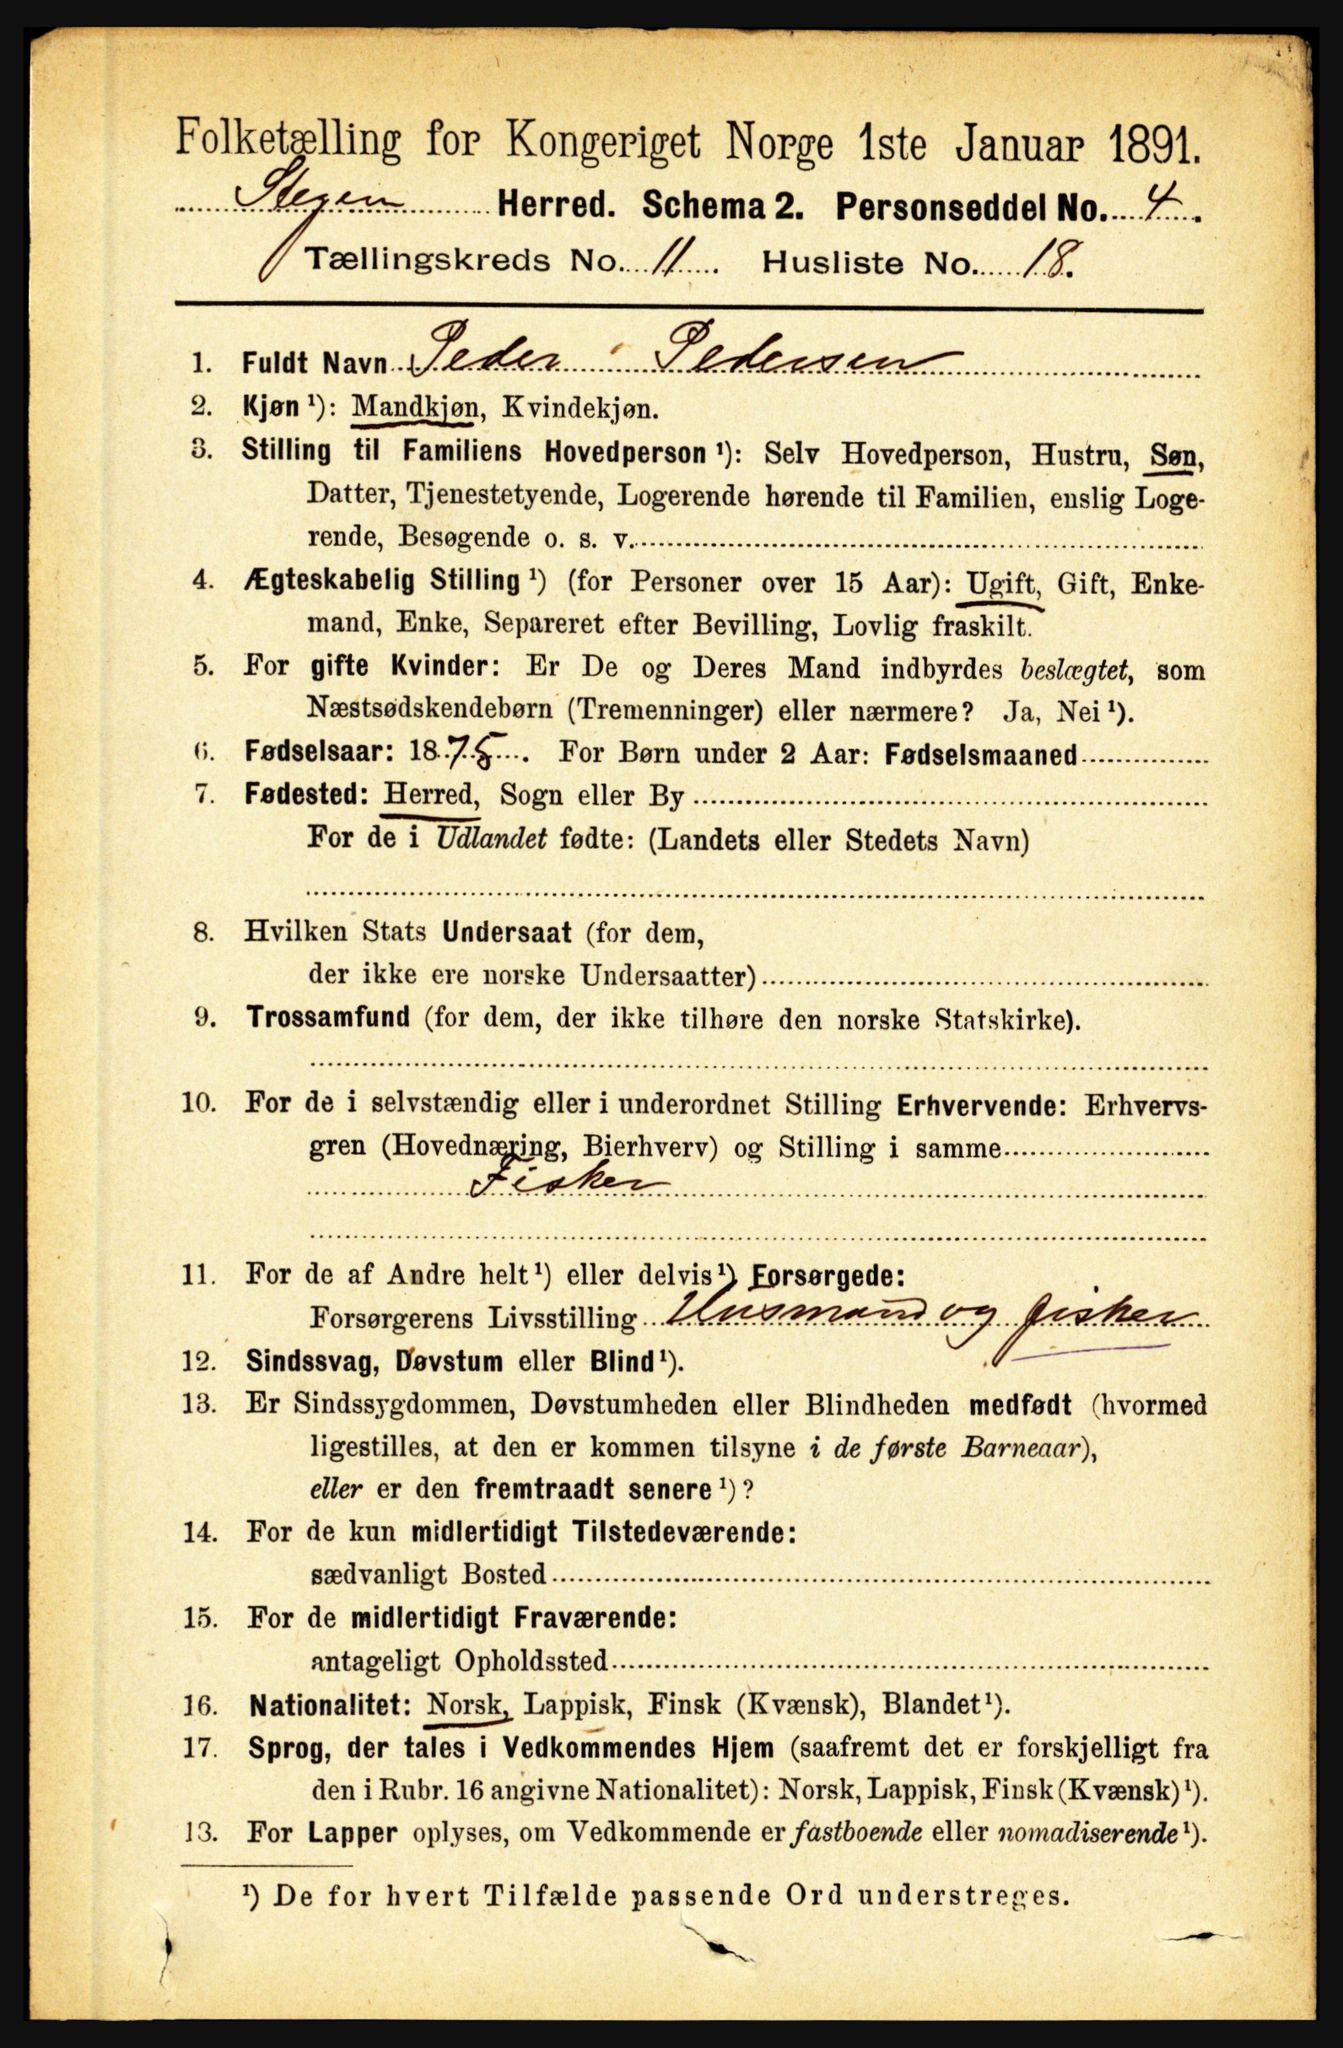 Folketælling for Kongeriget Norge 1ste Januar 1891.
Stegen Herred. Schema 2. Personseddel No. 4.
Tællingskreds No. 11. Husliste No. 18.
1. Fuldt Navn Peder Pedersen
2. Kjøn ¹): Mandkjøn, Kvindekjøn.
3. Stilling til Familiens Hovedperson ¹): Selv Hovedperson, Hustru, Søn,
Datter, Tjenestetyende, Logerende hørende til Familien, enslig Loge-
rende, Besøgende o. s. v.
4. Ægteskabelig Stilling ¹) (for Personer over 15 Aar): Ugift, Gift, Enke-
mand, Enke, Separeret efter Bevilling, Lovlig fraskilt.
5. For gifte Kvinder: Er De og Deres Mand indbyrdes beslægtet, som
Næstsødskendebørn (Tremenninger) eller nærmere? Ja, Nei ¹).
6. Fødselsaar: 1875. For Børn under 2 Aar: Fødselsmaaned
7. Fødested: Herred, Sogn eller By
For de i Udlandet fødte: (Landets eller Stedets Navn)
8. Hvilken Stats Undersaat (for dem,
der ikke ere norske Undersaatter)
9. Trossamfund (for dem, der ikke tilhøre den norske Statskirke).
10. For de i selvstændig eller i underordnet Stilling Erhvervende: Erhvervs-
gren (Hovednæring, Bierhverv) og Stilling i samme
Fisker
11. For de af Andre helt ¹) eller delvis ¹) Forsørgede:
Forsørgerens Livsstilling Husmand og fisker
12. Sindssvag, Døvstum eller Blind ¹).
13. Er Sindssygdommen, Døvstumheden eller Blindheden medfødt (hvormed
ligestilles, at den er kommen tilsyne i de første Barneaar),
eller er den fremtraadt senere ¹)?
14. For de kun midlertidigt Tilstedeværende:
sædvanligt Bosted
15. For de midlertidigt Fraværende:
antageligt Opholdssted
16. Nationalitet: Norsk, Lappisk, Finsk (Kvænsk), Blandet ¹).
17. Sprog, der tales i Vedkommendes Hjem (saafremt det er forskjelligt fra
den i Rubr. 16 angivne Nationalitet): Norsk, Lappisk, Finsk (Kvænsk) ¹).
13. For Lapper oplyses, om Vedkommende er fastboende eller nomadiserende ¹).
¹) De for hvert Tilfælde passende Ord understreges.